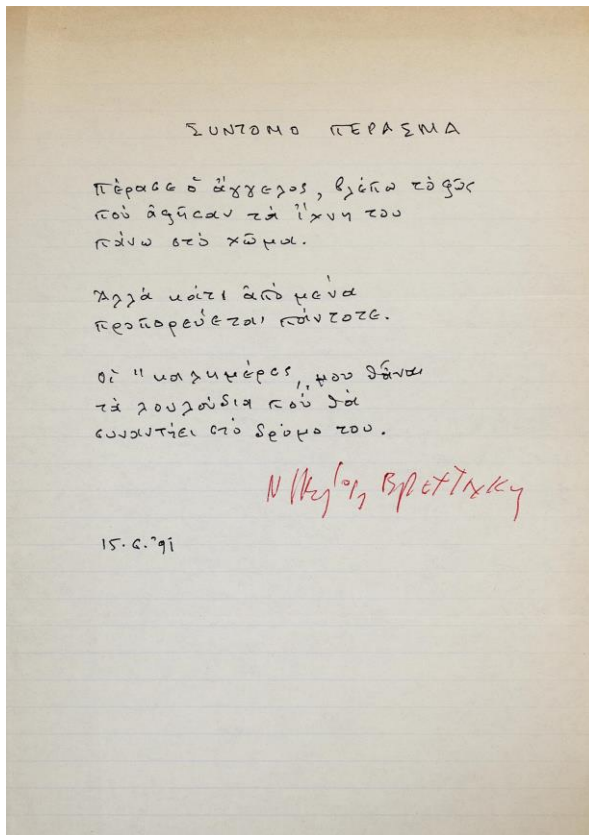 ΣΥΝΤΟΜΟ ΠΕΡΑΣΜΑ
Πέρασε ὁ ἄγγελος, βλέπω τὸ φῶς
ποὺ ἀφῆσαν τὰ ἴχνη του
πάνω στὸ χῶμα.
Ἀλλά κάτι ἀπὸ μένα
προπορεύεται πάντοτε.
Οἱ "καλημέρες,, μου θἆναι
τὰ λουλούδια ποὺ θὰ
συναντήσει στὸ δρόμο του.
Νικηφόρος Βρεττάκος
15.6.'91